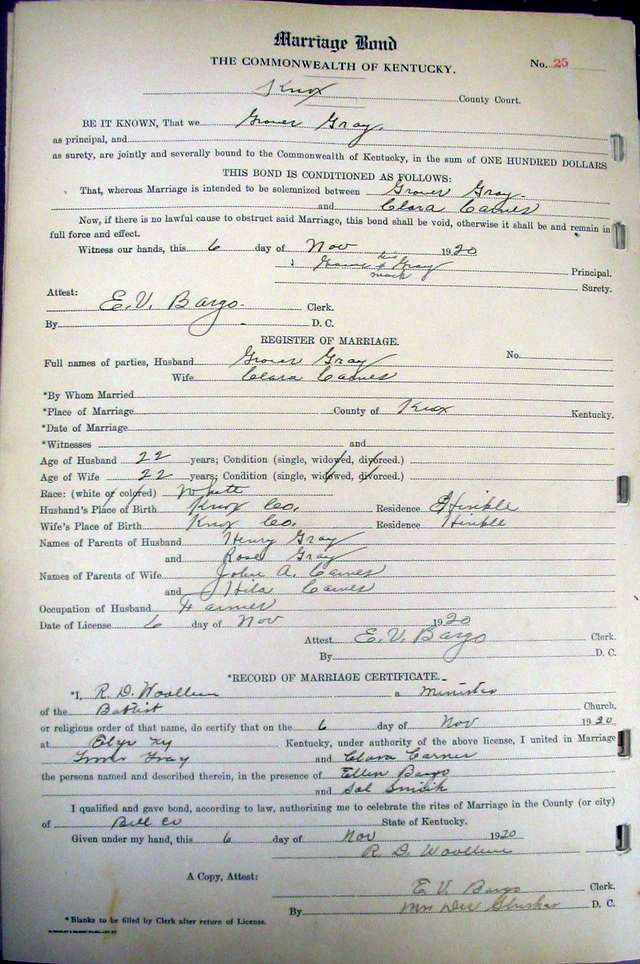 Marriage Bond
THE COMMONWEALTH OF KENTUCKY.
No. 25
Knox County Court.
BE IT KNOWN, That we Grover Gray.
as principal, and
as surety, are jointly and severally bound to the Commonwealth of Kentucky, in the sum of ONE HUNDRED DOLLARS
THIS BOND IS CONDITIONED AS FOLLOWS:
That, whereas Marriage is intended to be solemnized between Grover Gray.
and Clara Carnes
Now, if there is no lawful cause to obstruct said Marriage, this bond shall be void, otherwise it shall be and remain in
full force and effect.
Witness our hands, this 6 day of Nov 1920
his
Gray Principal.
mark
Surety.
Attest:
E. V. Bargo. Clerk.
By D. C.
REGISTER OF MARRIAGE.
Full names of parties, Husband Grover Gray No.
Wife Clara Carnes
*By Whom Married
*Place of Marriage County of Knox Kentucky.
*Date of Marriage
*Witnesses and
Age of Husband 22 years; Condition (single, widowed, divorced.)
Age of Wife 22 years; Condition (single, widowed, divorced.)
Race: (white or colored) White
Husband's Place of Birth Knox Co. Residence Hinkle
Wife's Place of Birth Knox Co. Residence Hinkle
Names of Parents of Husband Henry Gray
and Rose Gray
Names of Parents of Wife John A. Carnes
and Carnes
Occupation of Husband Farmer
Date of License 6 day of Nov 1920
Attest E. V. Bargo Clerk.
By D. C.
*RECORD OF MARRIAGE CERTIFICATE.
*I, R. D. a Minister
of the Baptist Church,
or religious order of that name, do certify that on the 6 day of Nov 1920
at Elys Ky Kentucky, under authority of the above license, I united in Marriage
Gray and Clara Carner
the persons named and described therein, in the presence of Ellen Bargo
and Sol Smith
I qualified and gave bond, according to law, authorizing me to celebrate the rites of Marriage in the County (or city)
of Bell Co State of Kentucky.
Given under my hand, this 6 day of Nov 1920
R. D.
A Copy, Attest:
E. V. Bargo Clerk.
By Mrs Dee D. C.
*Blanks to be filled by Clerk after return of License.